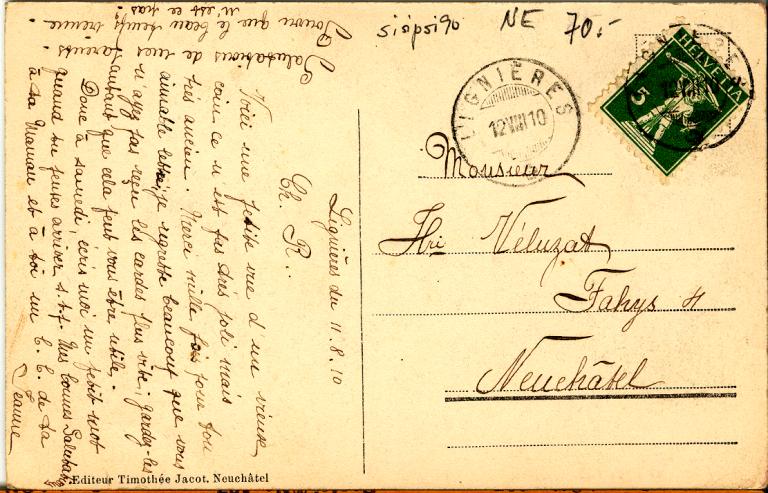 siópsi90
NE 70.-
HELVETIA
5
LIGNIÈRES
12 VIII 10
Monsieur
Hri Véluzat
Fahys 4
Neuchâtel
Lignières du 11.8.10
Ch. R..
Voici une petite vue d'un vieux
coin ce n'est pas très joli mais
très ancien. Merci mille fois pour ton
aimable lettre, je regrette beaucoup que vous
n'ayez pas reçu les cartes plus vite; gardez-les
autant que cela peut vous être utile.
Donc à samedi, écris moi un petit mot
quand tu penses arriver s.t.p. Mes bonnes Salutations
à ta Maman et à toi un b. b. de ta
Jeanne
Salutations de mes parents.
Pourvu que le beau temps vienne
n'est ce pas
Editeur Timothée Jacot. Neuchâtel